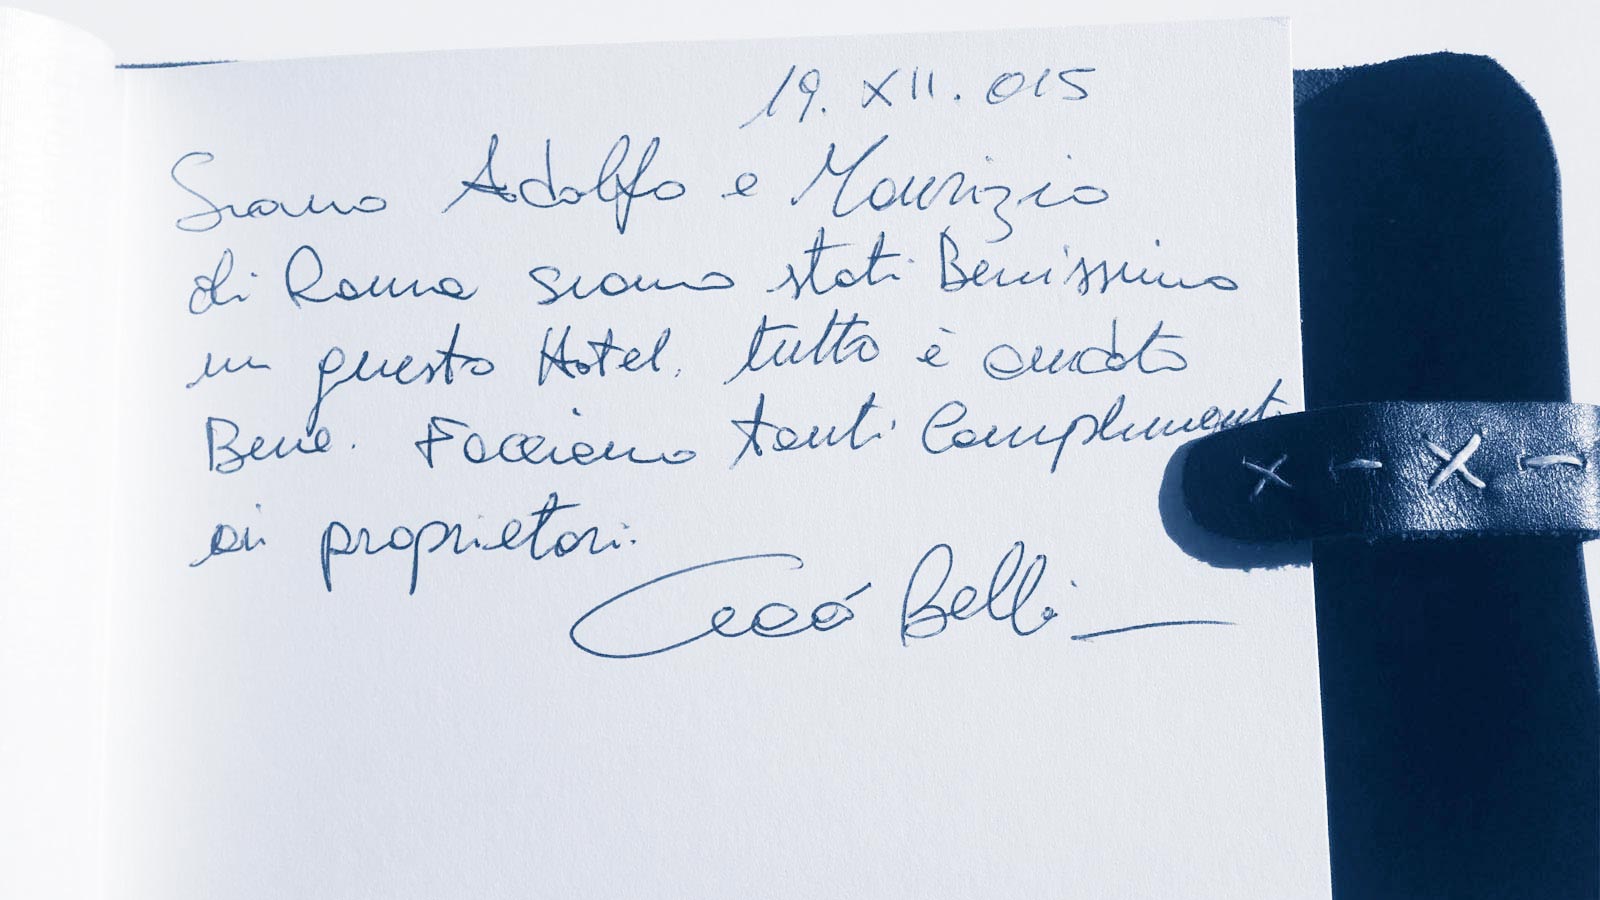 19. XII. 015
Siamo Adolfo e Maurizio
di Roma siamo stati Benissimo
in questo Hotel. tutto è andato
Bene. Facciamo tanti Complimenti
ai proprietari.
Belli